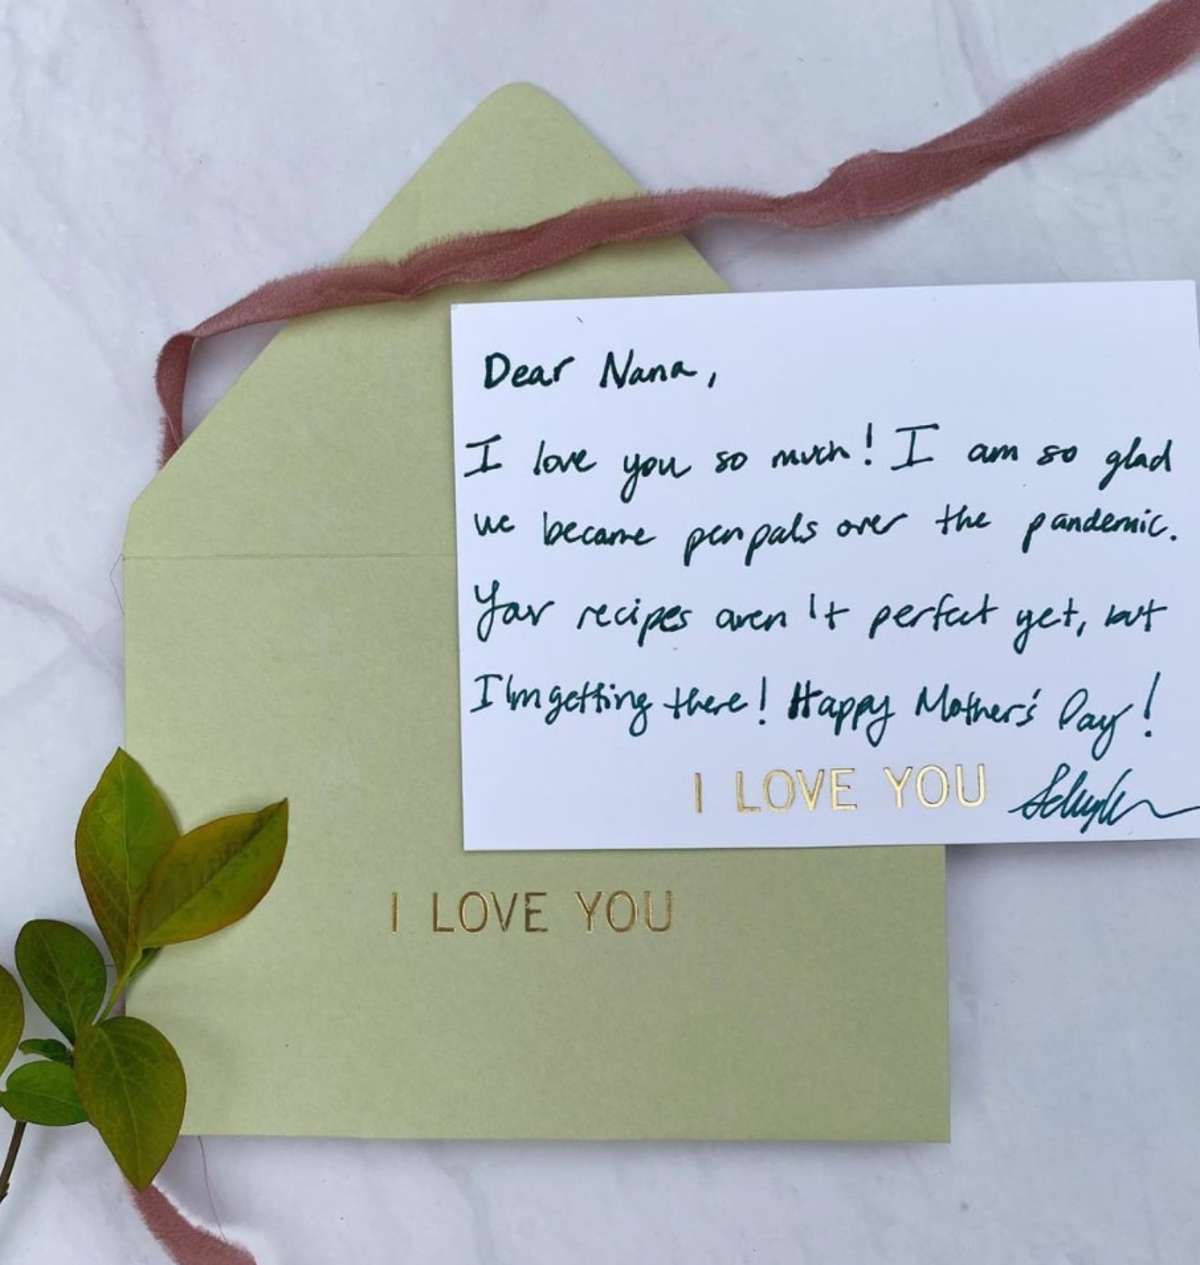 Dear Nana,
I love you so much! I am so glad
we became penpals over the pandemic.
Your recipes aren't perfect yet, but
I'm getting there! Happy Mother's Day!
I LOVE YOU Schuyler
I LOVE YOU